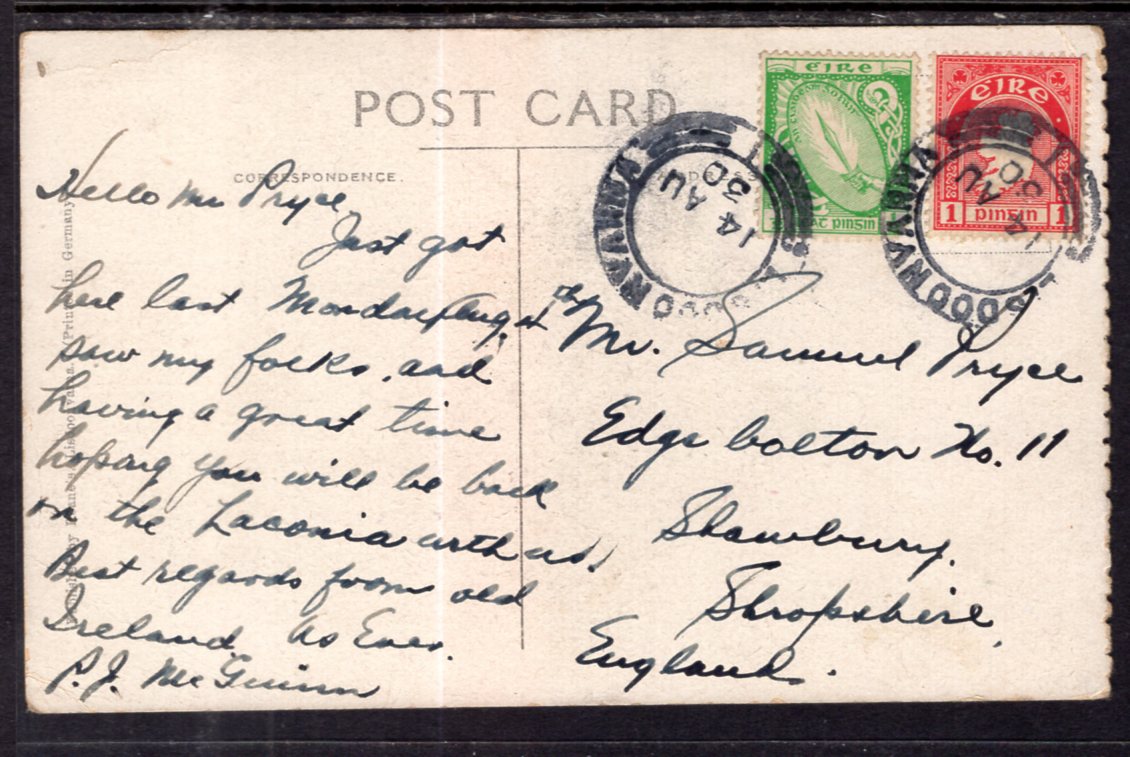 POST CARD
CORRESPONDENCE.
Hello Mr Pryce,
Just got
here last Monday Aug. 4th
saw my folks, and
having a great time
hoping you will be back
on the Laconia with us.
Best regards from old
Ireland. As Ever.
P.J. McGuinn
Mr. Samuel Pryce
Edge bolton No. 11
Shawbury.
Shropshire,
England.
éire
pinsin
éire
1 pinsin 1
14 AU
30
14 AU
30
in Germany